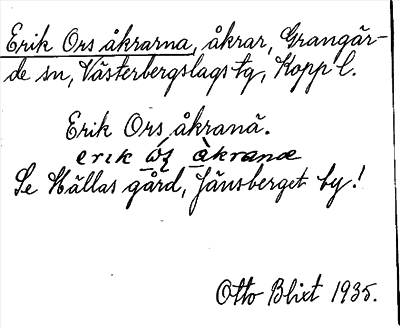 Erik Ors åkrarna, åkrar, Grangär-
de sn, Västerbergslags tg, Kopp l.
Erik Ors åkranä.
Se Hällas gård, Jänsberget by!
Otto Blixt 1935.